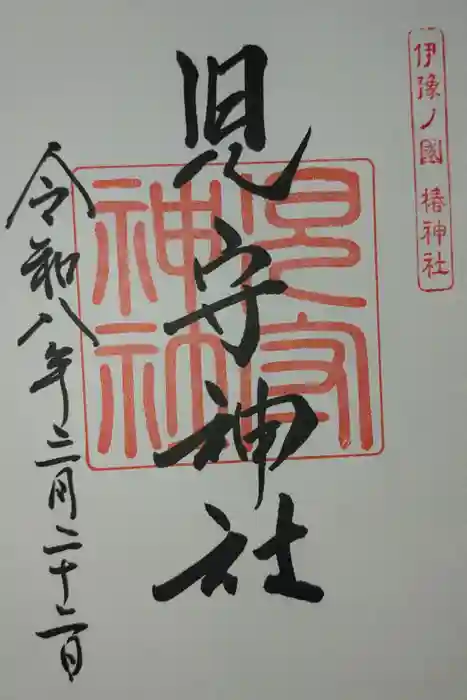 伊豫ノ國 椿神社
児守神社
令和八年三月二十二日